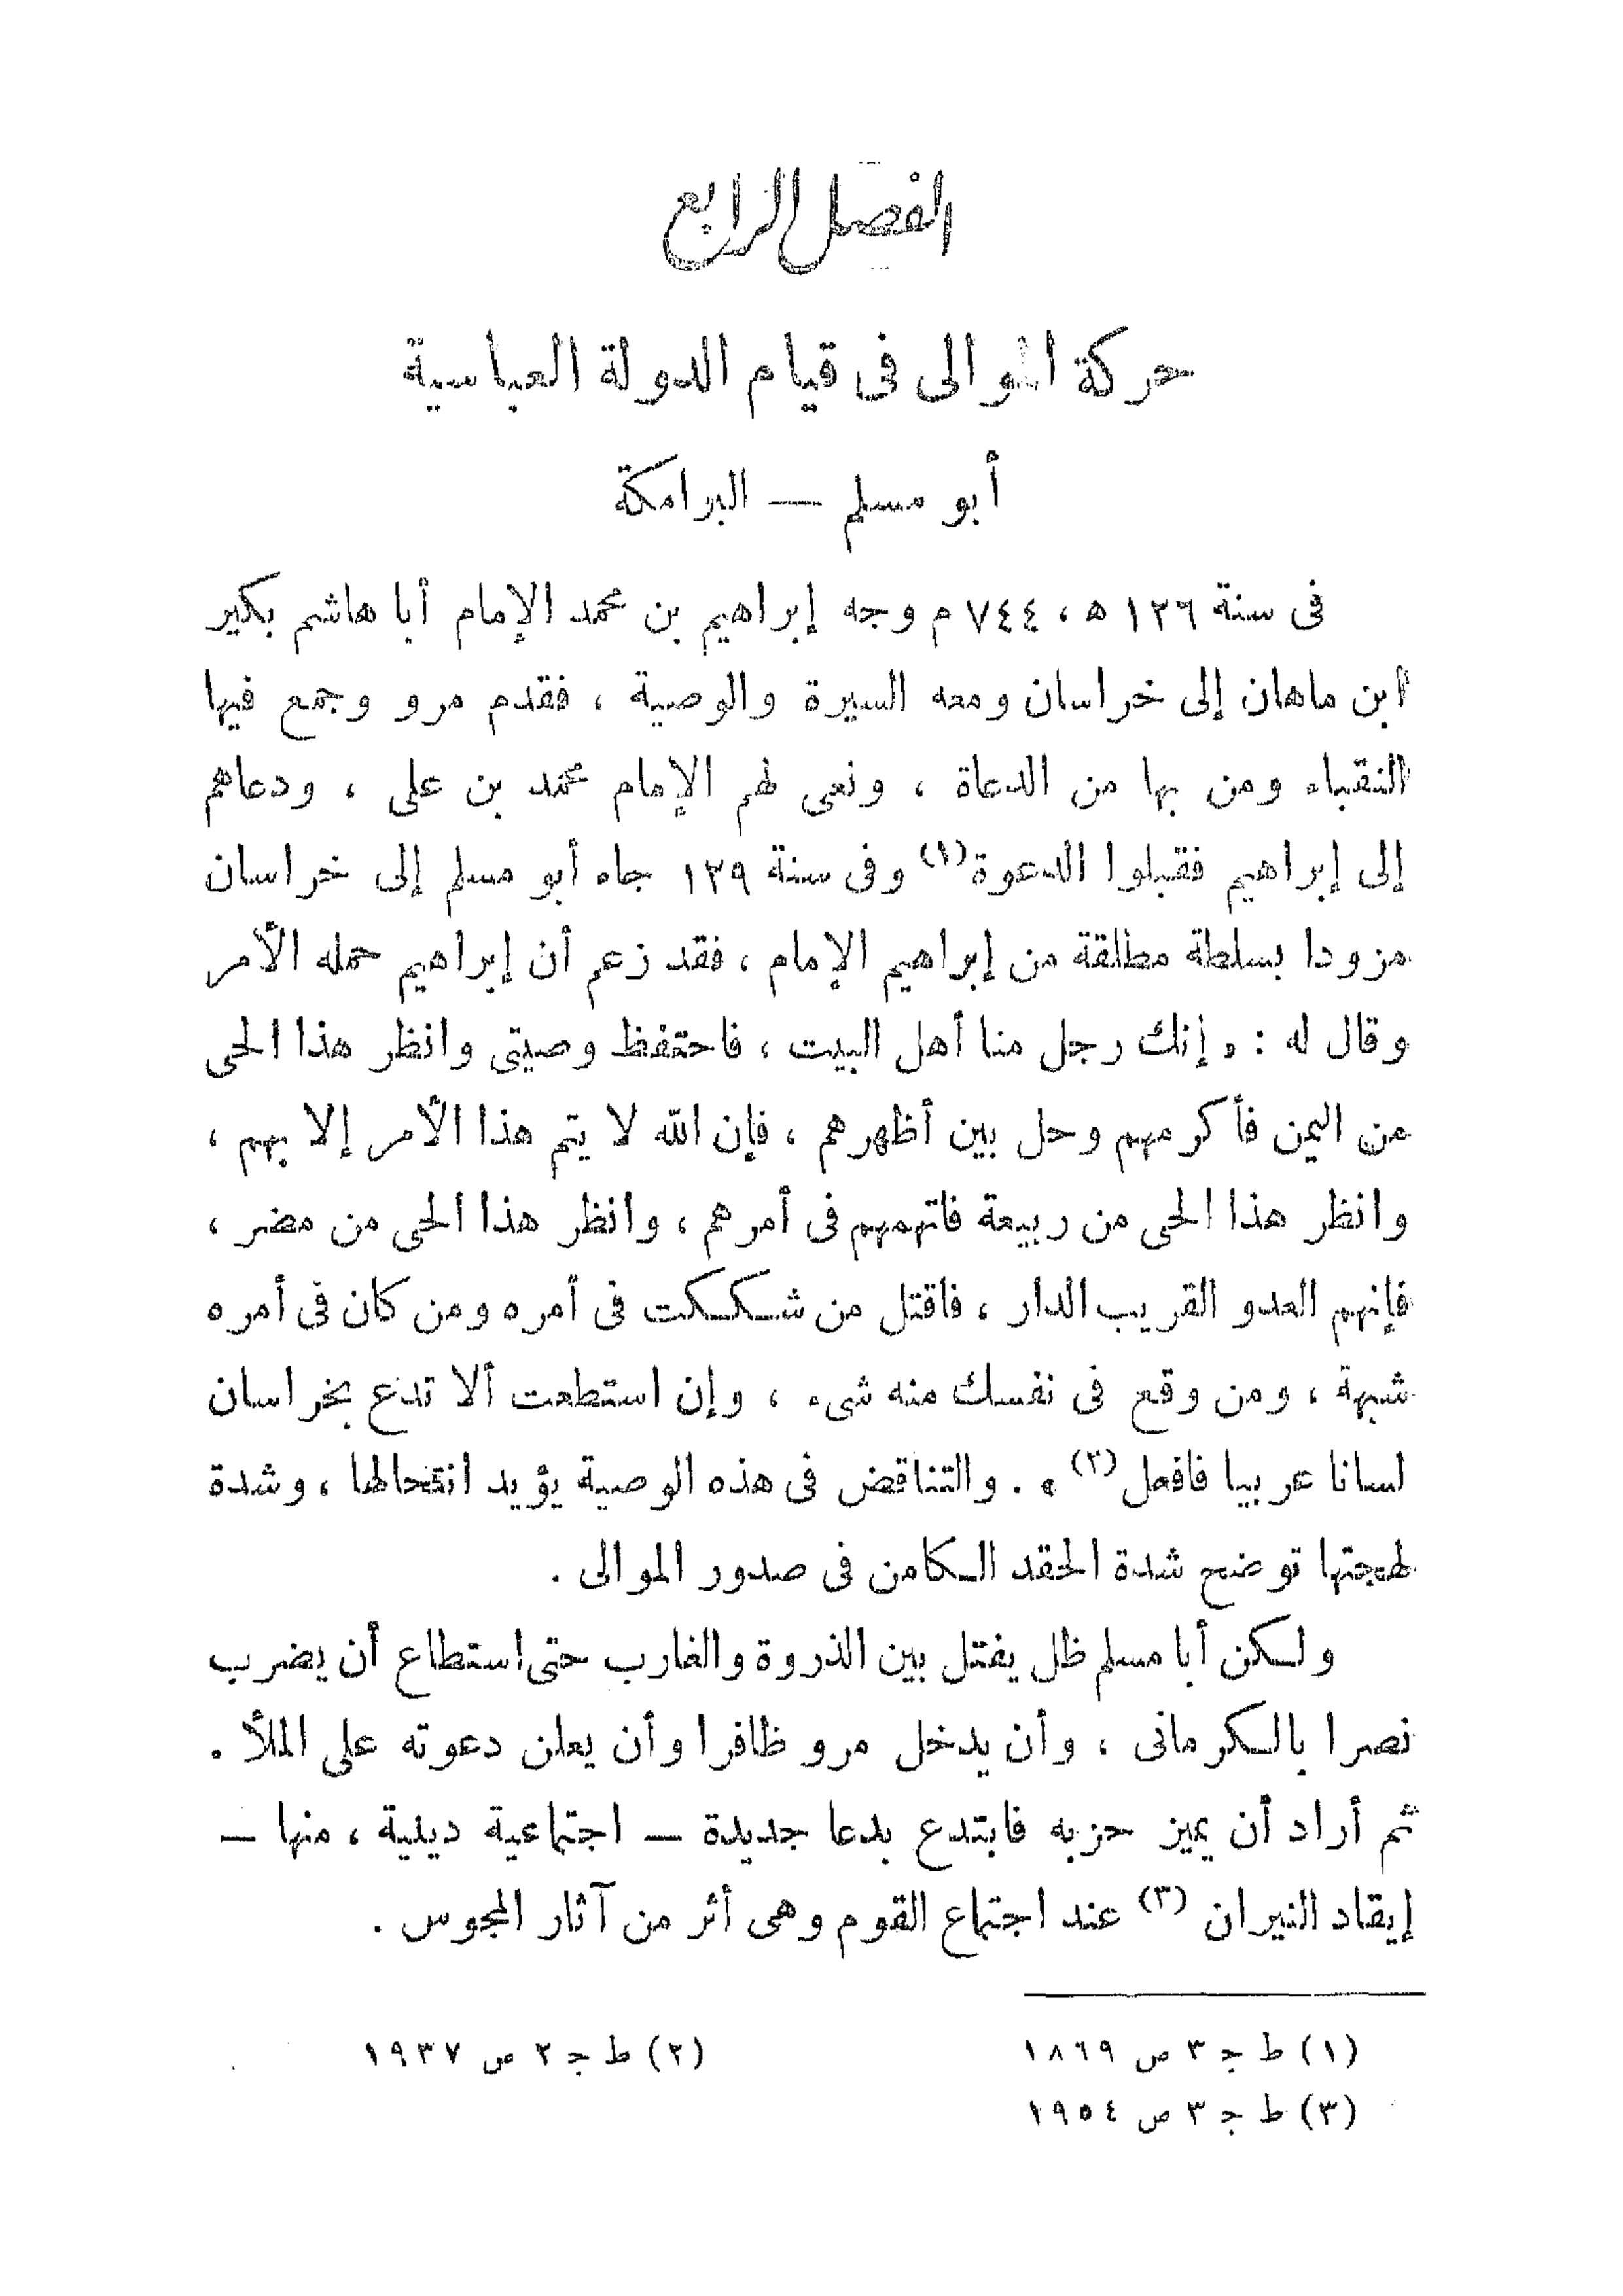 الفصل الرابع
حركة الموالى فى قيام الدولة العباسية
أبو مسلم — البرامكة
فى سنة ١٢٦ ه ، ٧٤٤ م وجه إبراهيم بن محمد الإمام أبا هاشم بكير
ابن ماهان إلى خراسان ومعه السيرة والوصية ، فقدم مرو وجمع فيها
النقباء ومن بها من الدعاة ، ونعى لهم الإمام محمد بن على ، ودعاهم
إلى إبراهيم فقبلوا الدعوة (١) وفى سنة ١٢٩ جاء أبو مسلم إلى خراسان
مزودا بسلطة مطلقة من إبراهيم الإمام ، فقد زعم أن إبراهيم حمله الأمر
وقال له : « إنك رجل منا أهل البيت ، فاحتفظ وصيتى وانظر هذا الحى
من اليمن فأكرمهم وحل بين أظهرهم ، فإن الله لا يتم هذا الأمر إلا بهم ،
وانظر هذا الحى من ربيعة فاتهمهم فى أمرهم ، وانظر هذا الحى من مضر ،
فإنهم العدو القريب الدار ، فاقتل من شككت فى أمره ومن كان فى أمره
شبهة ، ومن وقع فى نفسك منه شىء ، وإن استطعت ألا تدع بخراسان
لسانا عربيا فافعل (٢) » . والتناقض فى هذه الوصية يؤيد انتحالها ، وشدة
لهجتها توضح شدة الحقد الكامن فى صدور الموالى .
ولكن أبا مسلم ظل يفتل بين الذروة والغارب حتى استطاع أن يضرب
نصرا بالكرمانى ، وأن يدخل مرو ظافرا وأن يعلن دعوته على الملأ .
ثم أراد أن يميز حزبه فابتدع بدعا جديدة — اجتماعية دينية ، منها —
إيقاد النيران (٣) عند اجتماع القوم وهى أثر من آثار المجوس .
(١) ط ج ٣ ص ١٨٦٩
(٢) ط ج ٢ ص ١٩٣٧
(٣) ط ج ٣ ص ١٩٥٤